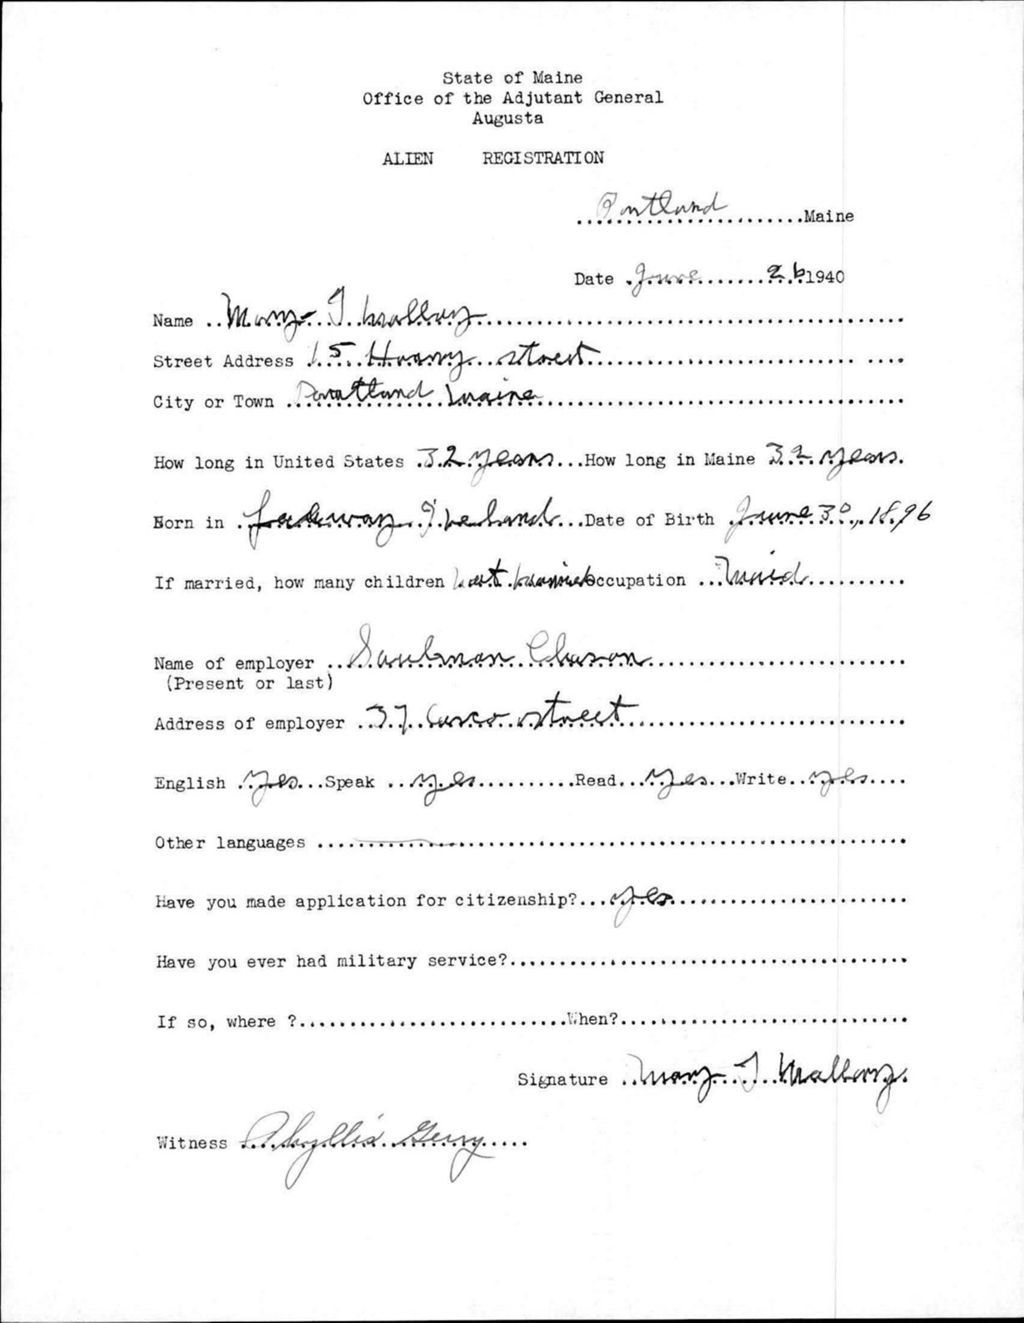 State of Maine
Office of the Adjutant General
Augusta
ALIEN REGISTRATION
Portland Maine
Date June 26 1940
Name Mary T Malloy
Street Address 15 Henry street
City or Town Portland Maine
How long in United States 32 years How long in Maine 32 years
Born in Ireland Date of Birth June 30, 1896
If married, how many children not married Occupation Maid
Name of employer
(Present or last)
Address of employer 37 Casco street
English Yes Speak yes Read Yes Write yes
Other languages
Have you made application for citizenship? yes
Have you ever had military service?
If so, where ? When?
Signature Mary T Malloy
Witness Phyllis Gerry